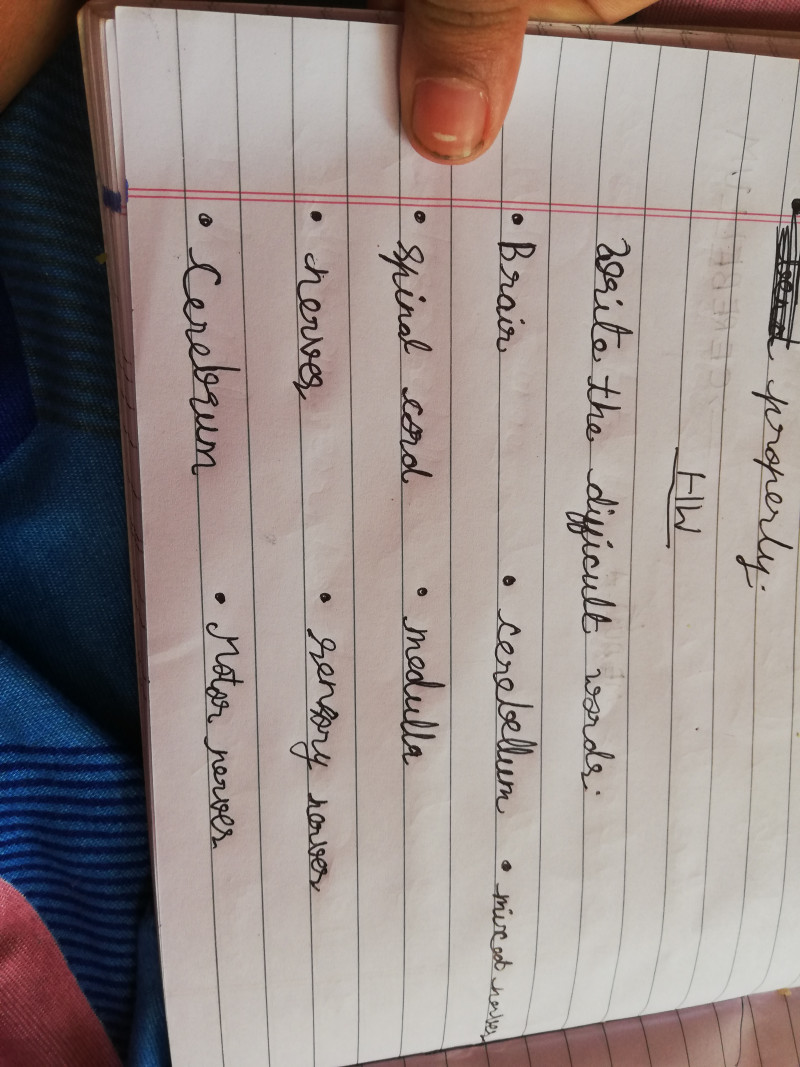 properly.
H/W
Write the difficult words.
• Brain • Cerebellum • mixed nerves
• Spinal cord • medulla
• nerves • sensory nerves
• Cerebrum • Motor nerves